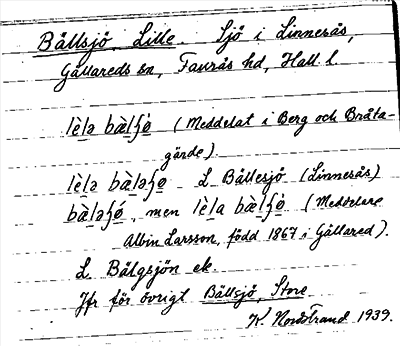 Bällsjö, Lille. Sjö i Linnerås,
Gällareds sn, Faurås hd, Hall. l.
lè̱lə bæ̀lʃø̱ (Meddelat i Berg och Bråta-
gärde).
lè̱lə bæ̀ləʃø̱ L. Bällesjö (Linnerås)
bæ̀ləʃǿ̱, men lè̱la bæ̀lʃø̱̀ (Meddelare
Albin Larsson, född 1867 i Gällared).
L. Bälgsjön ek.
Jfr för övrigt Bällsjö, Store
K. Nordstrand 1939.